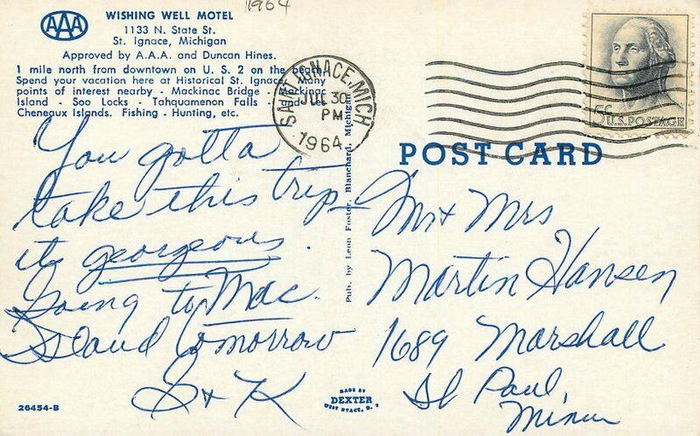 1964
AAA
WISHING WELL MOTEL
1133 N. State St.
St. Ignace, Michigan
Approved by A.A.A. and Duncan Hines.
1 mile north from downtown on U. S. 2 on the beach.
Spend your vacation here at Historical St. Ignace. Many
points of interest nearby - Mackinac Bridge - Mackinac
Island - Soo Locks - Tahquamenon Falls - and Les
Cheneaux Islands. Fishing - Hunting, etc.
SAINT IGNACE, MICH.
JUL 30
PM
1964
5¢
U.S. POSTAGE
POST CARD
You gotta
take this trip -
its gorgeous.
Going to Mac.
Island tomorrow
S + K
Pub. by Leon Foster, Blanchard, Michigan
Mr + Mrs
Martin Hansen
1689 Marshall
St Paul,
Minn
26454-B
MADE BY
DEXTER
WEST NYACK, N. Y.